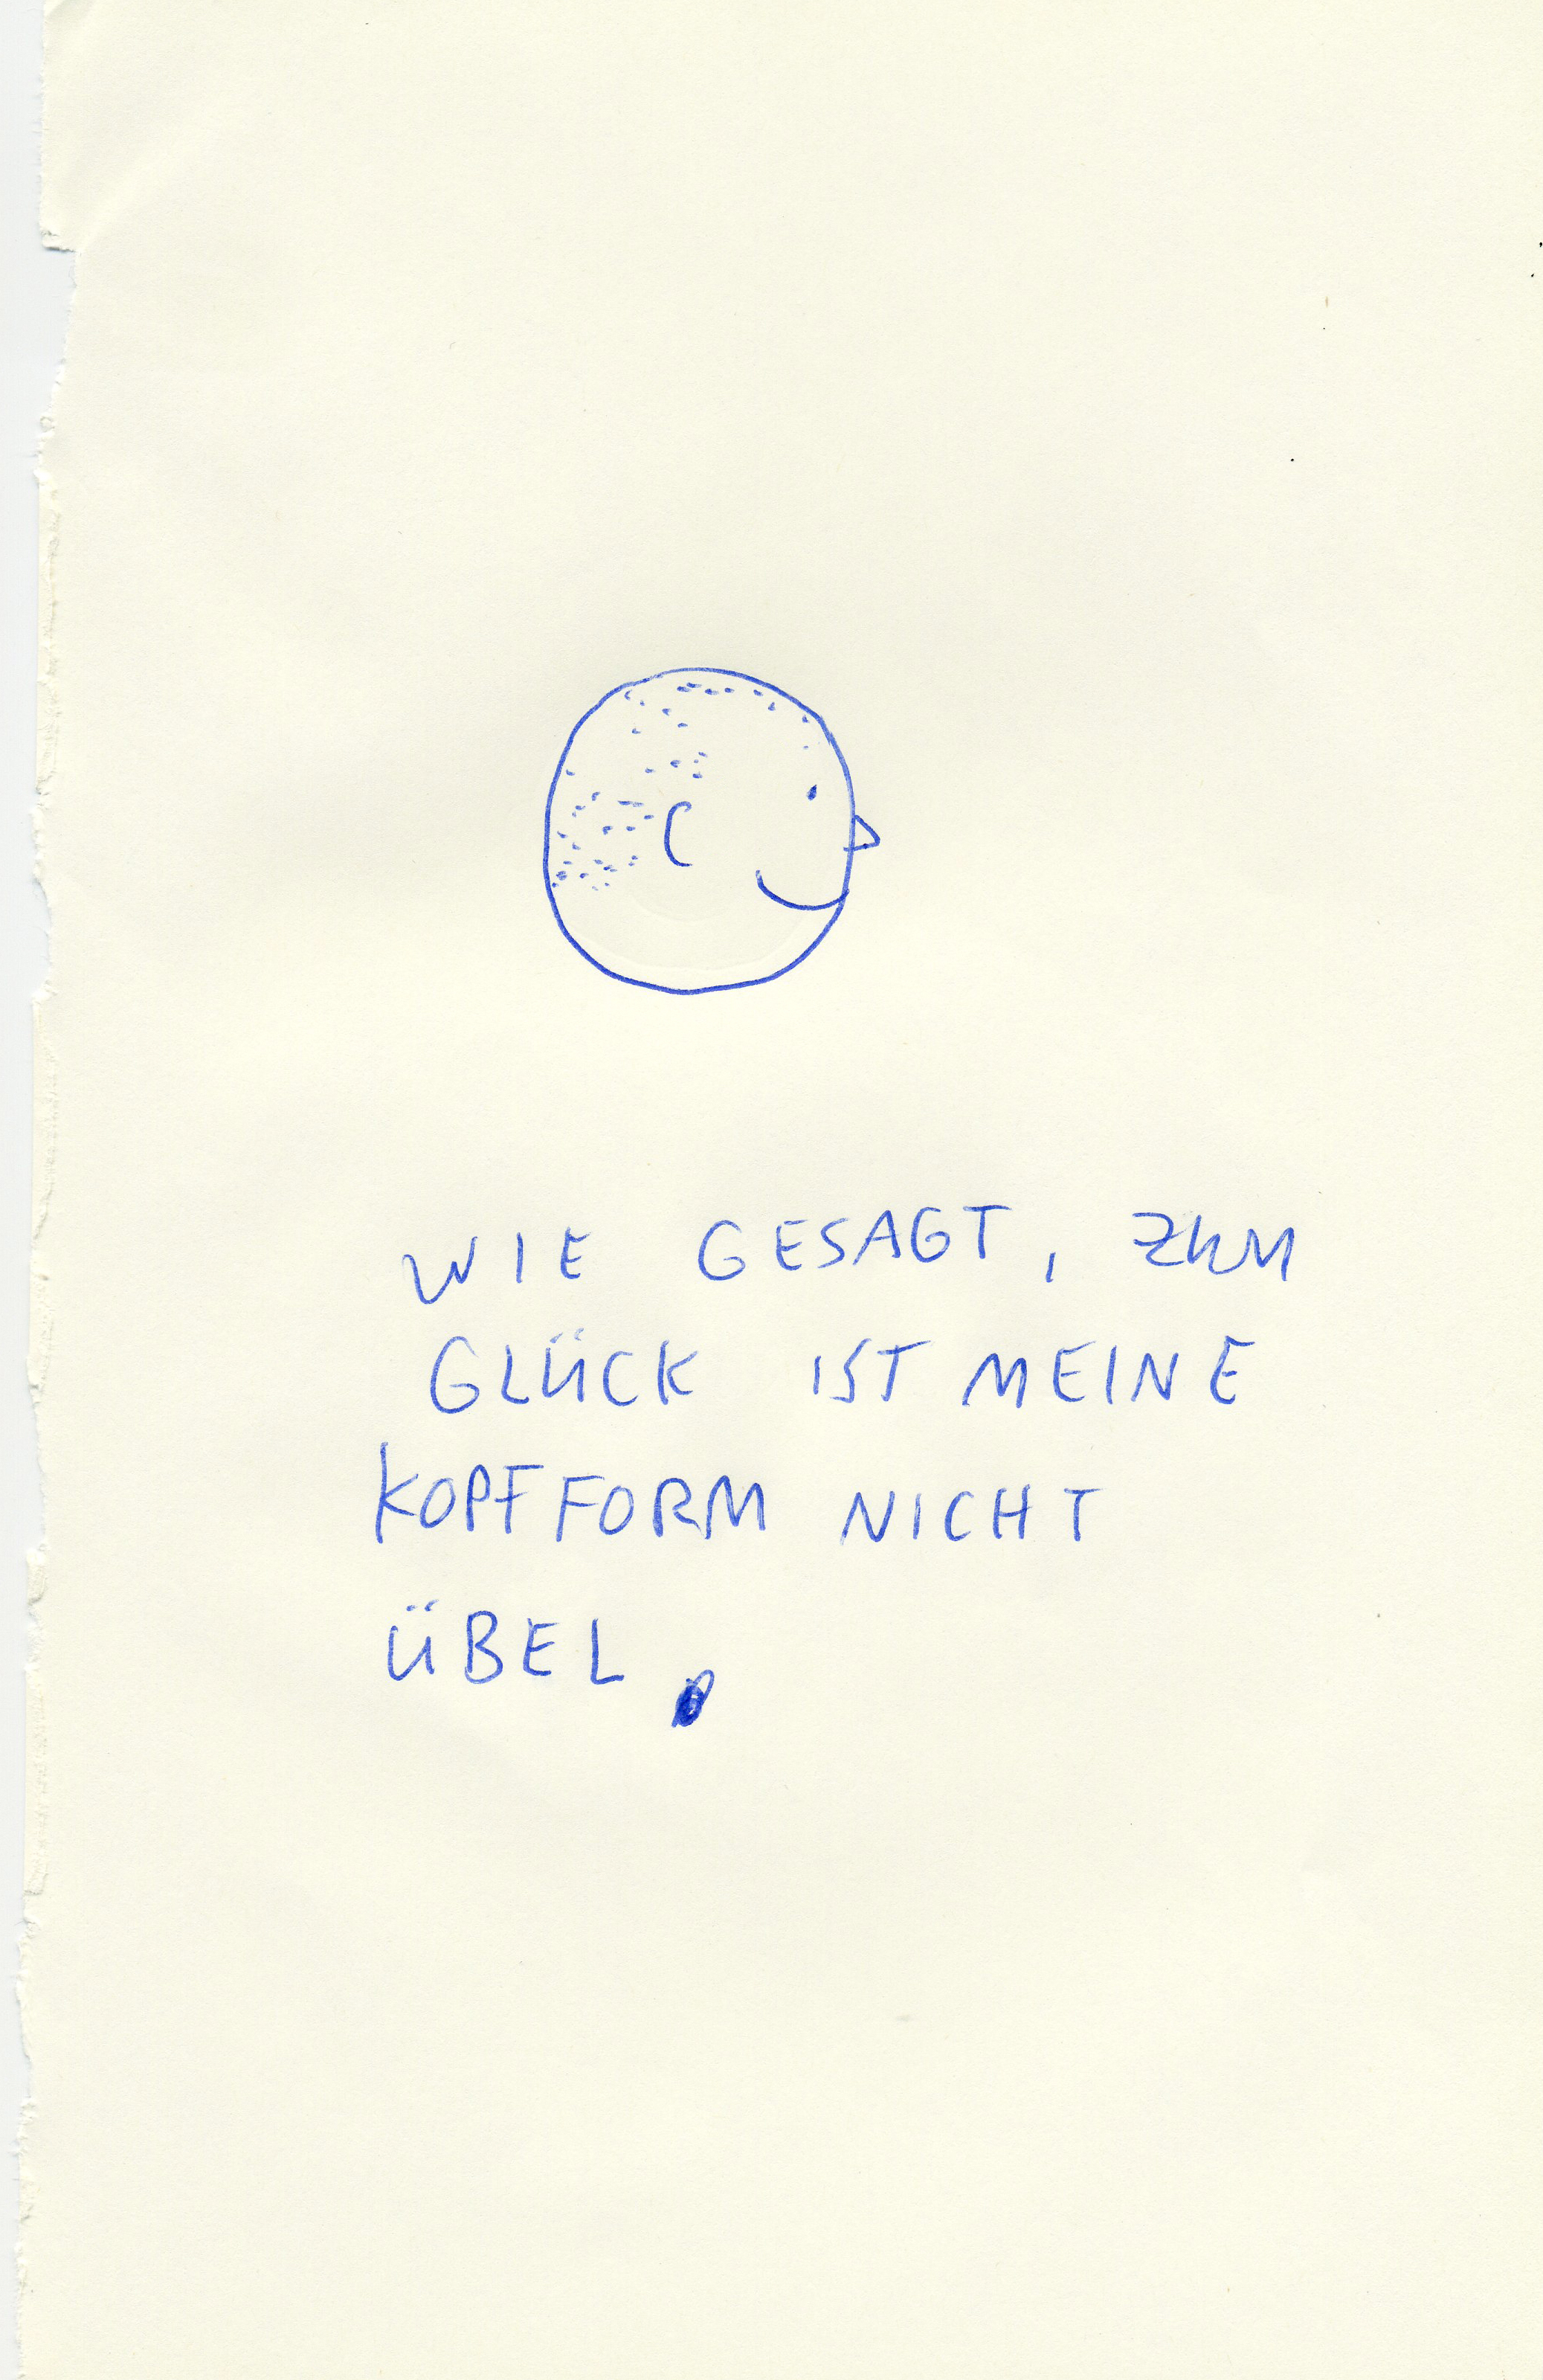 WIE GESAGT, ZUM
GLÜCK IST MEINE
KOPFFORM NICHT
ÜBEL.